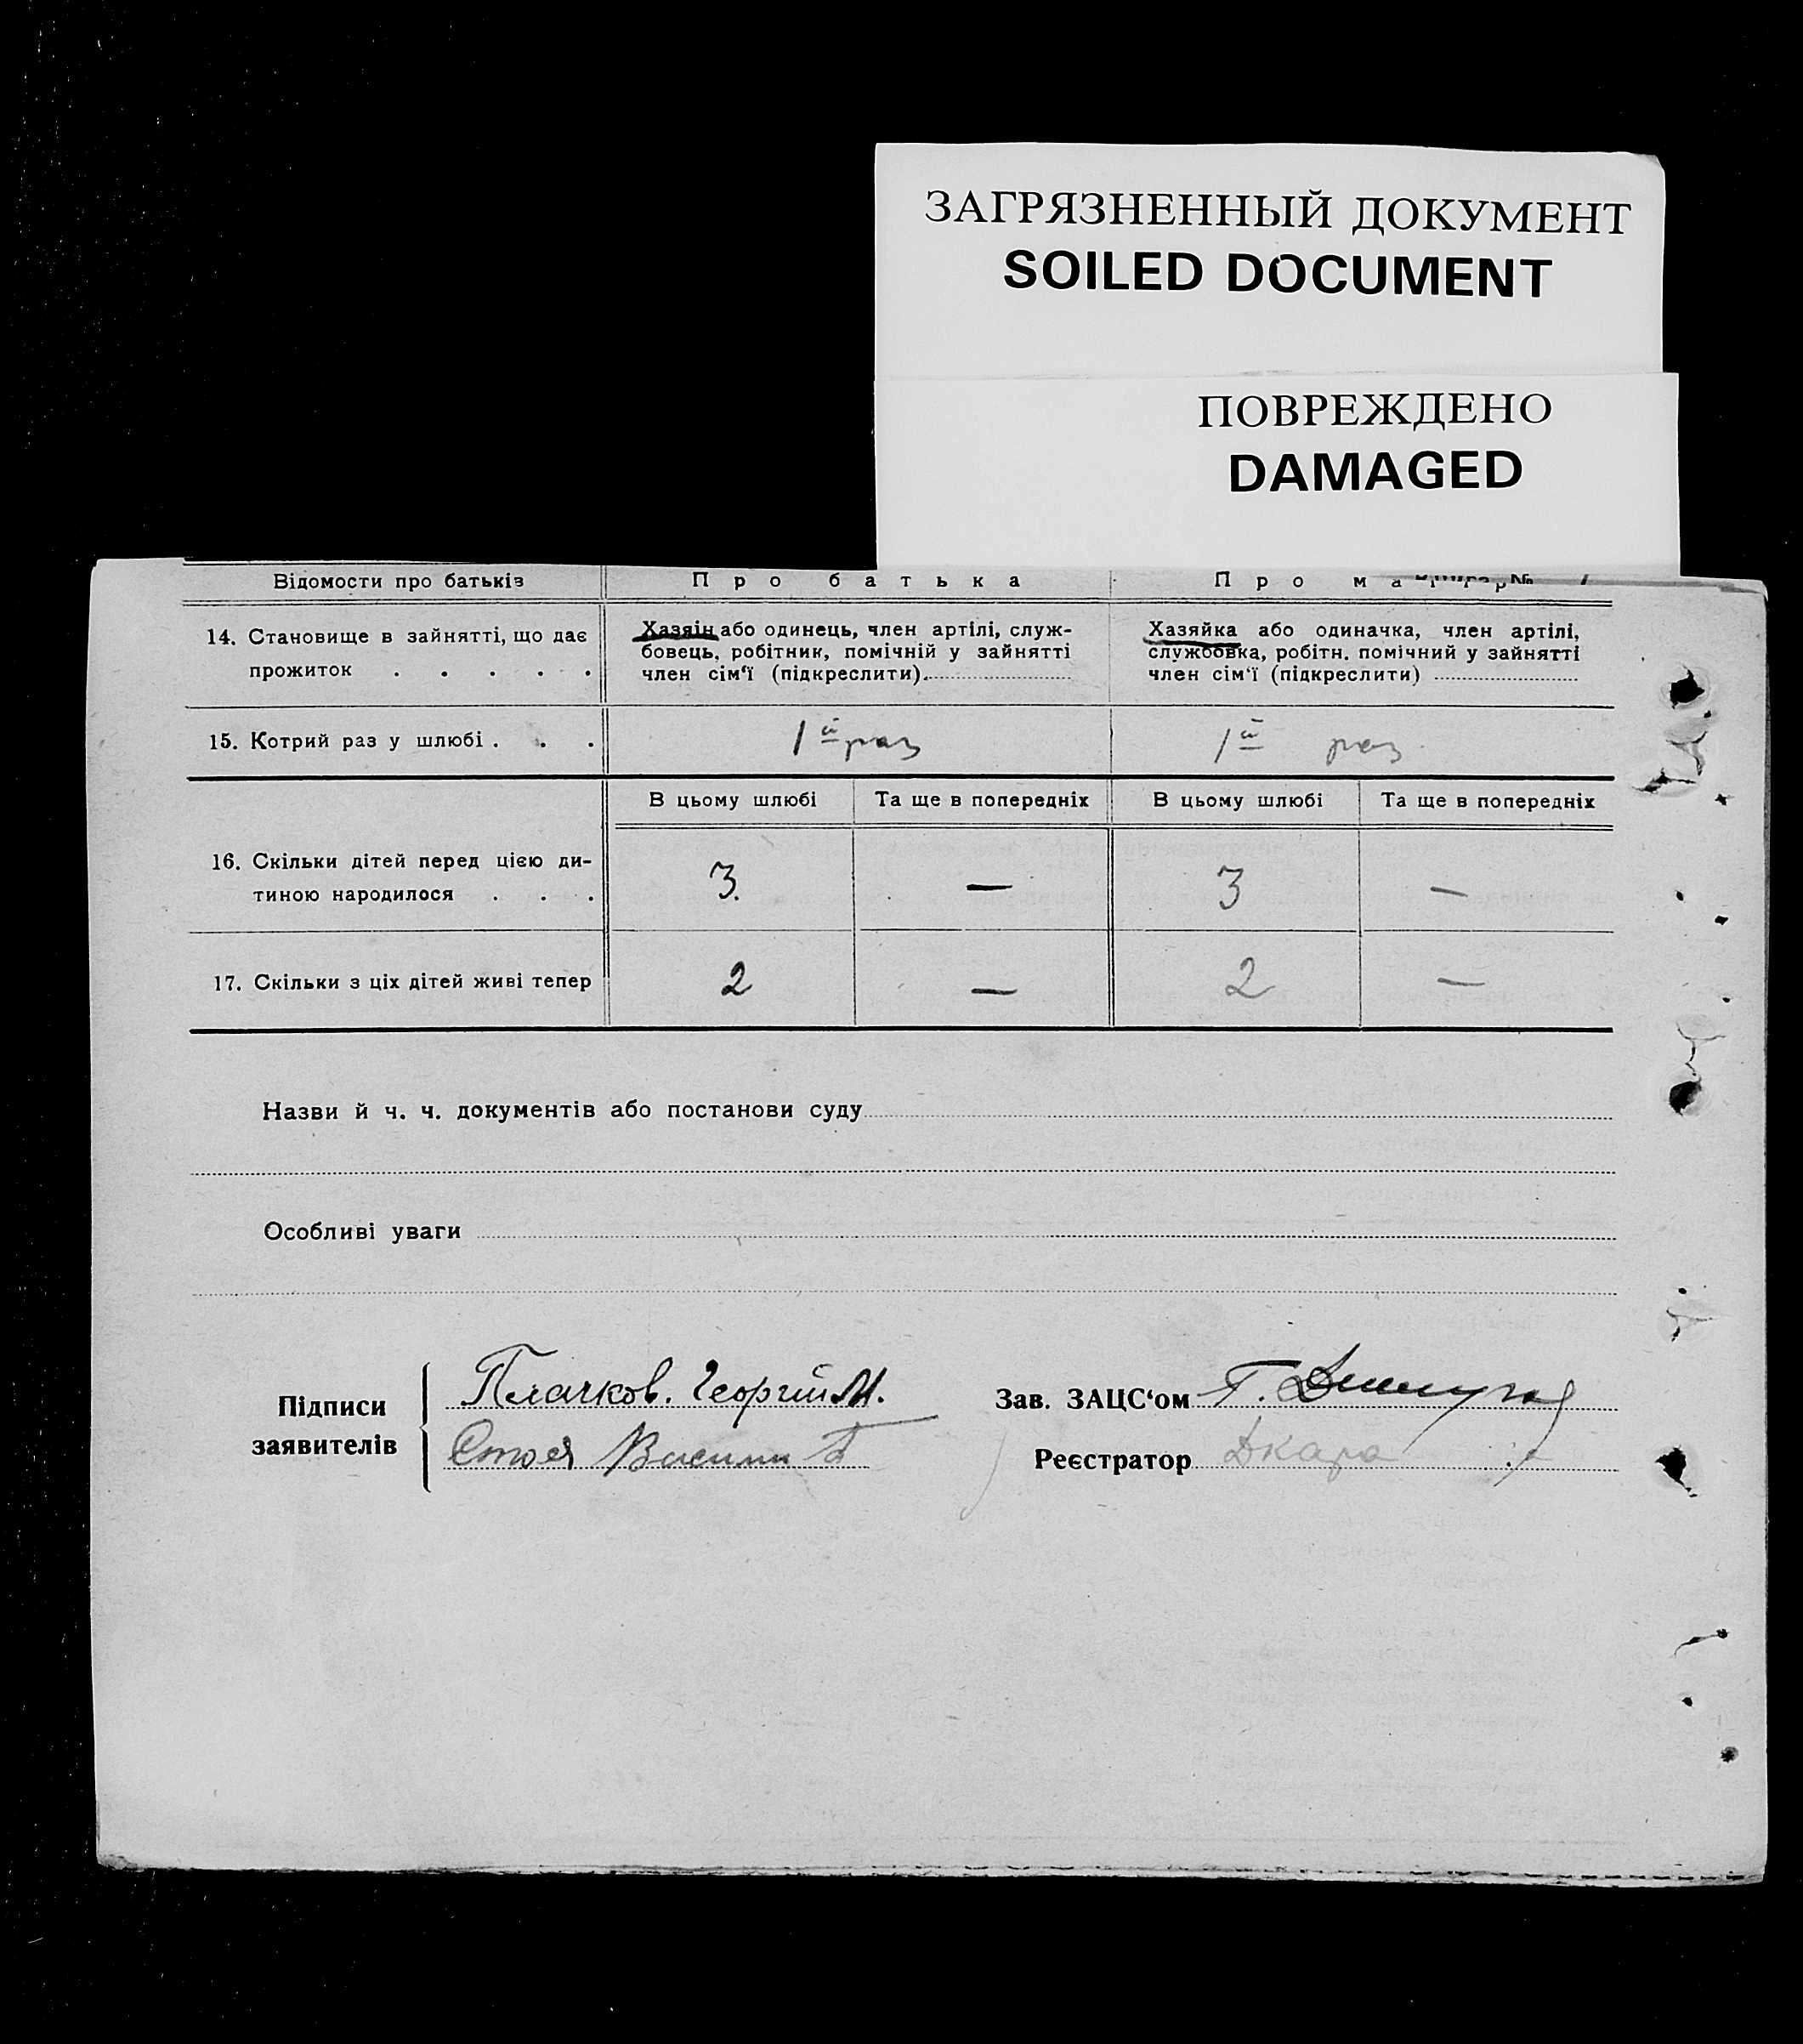 ЗАГРЯЗНЕННЫЙ ДОКУМЕНТ
SOILED DOCUMENT
ПОВРЕЖДЕНО
DAMAGED
Відомости про батьків Про батька Про ма
14. Становище в зайнятті, що дає прожиток . . . . .
Хазяін або одинець, член артілі, служ-
бовець, робітник, помічній у зайнятті
член сім'ї (підкреслити)
Хазяйка або одиначка, член артілі,
службовка, робітн. помічний у зайнятті
член сім'ї (підкреслити)
15. Котрий раз у шлюбі . . . 1й раз 1й раз
В цьому шлюбі Та ще в попередніх В цьому шлюбі Та ще в попередніх
16. Скільки дітей перед цією ди-
тиною народилося . . . 3. — 3 —
17. Скільки з ціх дітей живі тепер 2 — 2 —
Назви й ч. ч. документів або постанови суду
Особливі уваги
Підписи заявителів
Плачков. Георгій М.
Зав. ЗАЦС'ом Г.
Реєстратор Дкара